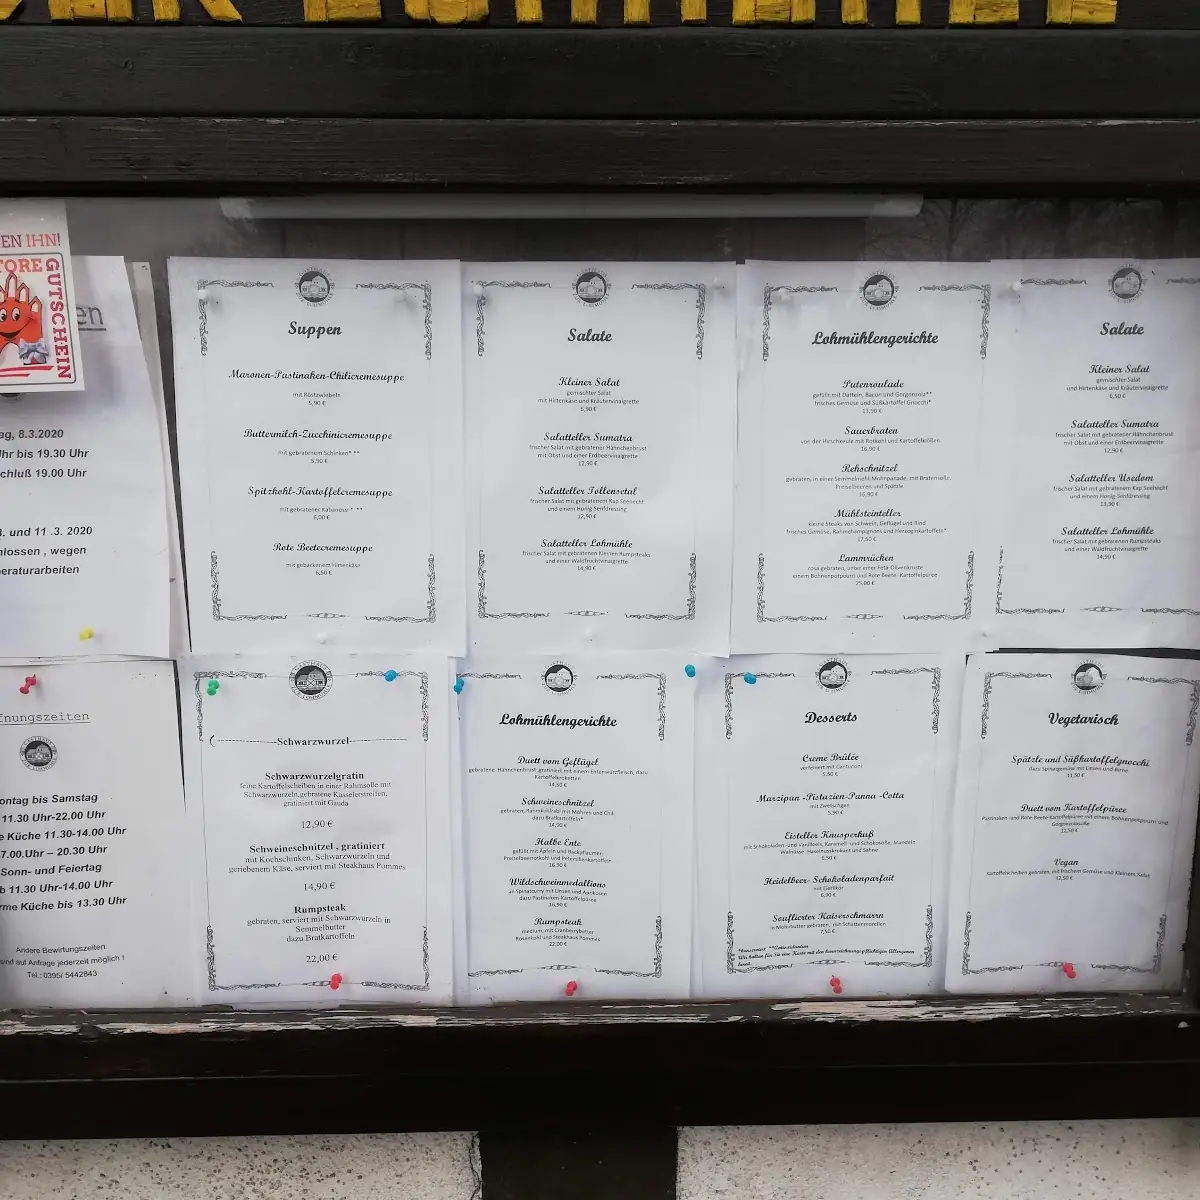 EN IHN!
TORE
GUTSCHEIN
en
ag, 8.3.2020
Uhr bis 19.30 Uhr
schluß 19.00 Uhr
3. und 11 .3. 2020
hlossen , wegen
eraturarbeiten
Suppen
Maronen-Pastinaken-Chilicremesuppe
mit Röstzwiebeln
5,90 €
Buttermilch-Zucchinicremesuppe
mit gebratenem Schinken* **
5,90 €
Spitzkohl-Kartoffelcremesuppe
mit gebratener Kabanossi * **
6,00 €
Rote Beetecremesuppe
mit gebackenem Hirtenkäse
6,50 €
Salate
Kleiner Salat
gemischter Salat
mit Hirtenkäse und Kräutervinaigrette
6,90 €
Salatteller Sumatra
frischer Salat mit gebratener Hähnchenbrust
mit Obst und einer Erdbeervinaigrette
12,90 €
Salatteller Tollensetal
frischer Salat mit gebratenem Kap Seehecht
und einem Honig-Senfdressing
12,90 €
Salatteller Lohmühle
frischer Salat mit gebratenen Kleinen Rumpsteaks
und einer Waldfruchtvinaigrette
14,90 €
Lohmühlengerichte
Putenroulade
gefüllt mit Datteln, Bacon und Gorgonzola**
frisches Gemüse und Süßkartoffel Gnocchi*
13,90 €
Sauerbraten
von der Hirschkeule mit Rotkohl und Kartoffelklößen
16,90 €
Rehschnitzel
gebraten, in einer Semmelmehl Mohnpanade, mit Bratensoße,
Preiselbeeren und Spätzle
16,90 €
Mühlsteinteller
kleine Steaks von Schwein, Geflügel und Rind
frisches Gemüse, Rahmchampignons und Herzoginkartoffeln*
17,50 €
Lammrücken
rosa gebraten, unter einer Feta-Olivenkruste
einem Bohnenpotpourri und Rote Beete -Kartoffelpüree
25,00 €
Salate
Kleiner Salat
gemischter Salat
und Hirtenkäse und Kräutervinaigrette
6,50 €
Salatteller Sumatra
frischer Salat mit gebratener Hähnchenbrust
mit Obst und einer Erdbeervinaigrette
12,90 €
Salatteller Usedom
frischer Salat mit gebratenem Kap Seehecht
und einem Honig-Senfdressing
13,90 €
Salatteller Lohmühle
frischer Salat mit gebratenen Rumpsteaks
und einer Waldfruchtvinaigrette
14,90 €
fnungszeiten
ontag bis Samstag
11.30 Uhr-22.00 Uhr
e Küche 11.30-14.00 Uhr
7.00.Uhr – 20.30 Uhr
Sonn- und Feiertag
b 11.30 Uhr-14.00 Uhr
rme Küche bis 13.30 Uhr
Andere Bewirtungszeiten
sind auf Anfrage jederzeit möglich !
Tel.: 0395/ 5442843
Schwarzwurzel
Schwarzwurzelgratin
feine Kartoffelscheiben in einer Rahmsoße mit
Schwarzwurzeln,gebratene Kasselerstreifen,
gratiniert mit Gauda
12,90 €
Schweineschnitzel , gratiniert
mit Kochschinken, Schwarzwurzeln und
geriebenem Käse, serviert mit Steakhaus Pommes
14,90 €
Rumpsteak
gebraten, serviert mit Schwarzwurzeln in
Semmelbutter
dazu Bratkartoffeln
22,00 €
Lohmühlengerichte
Duett vom Geflügel
gebratene Hähnchenbrust,gratiniert mit einem Entenwürzfleisch, dazu
Kartoffelkroketten
14,50 €
Schweineschnitzel
gebraten, Rahmkohlrabi mit Möhren und Chili
dazu Bratkartoffeln*
14,90 €
Halbe Ente
gefüllt mit Äpfeln und Backpflaumen
Preiselbeerrotkohl und Petersilienkartoffeln
16,90 €
Wildschweinmedallions
an Spinatcurry mit Linsen und Aprikosen
dazu Pastinaken-Kartoffelpüree
16,90 €
Rumpsteak
medium, mit Cranberrybutter
Rosenkohl und Steakhaus Pommes
22,00 €
Desserts
Creme Brûlée
verfeinert mit Cantuccini
5,50 €
Marzipan -Pistazien-Panna -Cotta
mit Zwetschgen
5,90 €
Eisteller Knusperkuß
mit Schokoladen -und Vanilleeis, Karamell -und Schokosoße, Mandeln
Walnüsse, Haselnusskrokant und Sahne
6,50 €
Heidelbeer- Schokoladenparfait
mit Eierlikör
6,90 €
Soufflierter Kaiserschmarrn
in Mohnbutter gebraten, mit Schattenmorellen
7,50 €
*konserviert **Antioxidantien
Wir halten für Sie eine Karte mit den kennzeichnungspflichtigen Allergenen
bereit.
Vegetarisch
Spätzle und Süßkartoffelgnocchi
dazu Spinatgemüse mit Linsen und Birne
11,50 €
Duett vom Kartoffelpüree
Pastinaken -und Rote-Beete-Kartoffelpüree mit einem Bohnenpotpourri und
Gorgonzolasoße
12,50 €
Vegan
Kartoffelscheiben gebraten, mit frischem Gemüse und Kleinem Salat
12,50 €